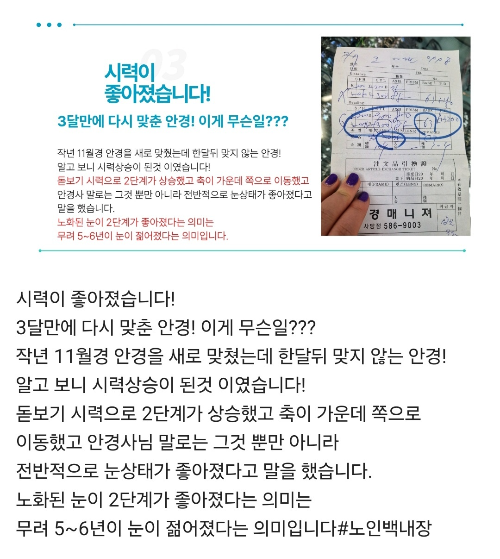 03
시력이
좋아졌습니다!
3달만에 다시 맞춘 안경! 이게 무슨일???
작년 11월경 안경을 새로 맞췄는데 한달뒤 맞지 않는 안경!
알고 보니 시력상승이 된것 이였습니다!
돋보기 시력으로 2단계가 상승했고 축이 가운데 쪽으로 이동했고
안경사 말로는 그것 뿐만 아니라 전반적으로 눈상태가 좋아졌다고
말을 했습니다.
노화된 눈이 2단계가 좋아졌다는 의미는
무려 5~6년이 눈이 젊어졌다는 의미입니다.
注文品引換證
경매니저
586-9003
시력이 좋아졌습니다!
3달만에 다시 맞춘 안경! 이게 무슨일???
작년 11월경 안경을 새로 맞쳤는데 한달뒤 맞지 않는 안경!
알고 보니 시력상승이 된것 이였습니다!
돋보기 시력으로 2단계가 상승했고 축이 가운데 쪽으로
이동했고 안경사님 말로는 그것 뿐만 아니라
전반적으로 눈상태가 좋아졌다고 말을 했습니다.
노화된 눈이 2단계가 좋아졌다는 의미는
무려 5~6년이 눈이 젊어졌다는 의미입니다#노인백내장